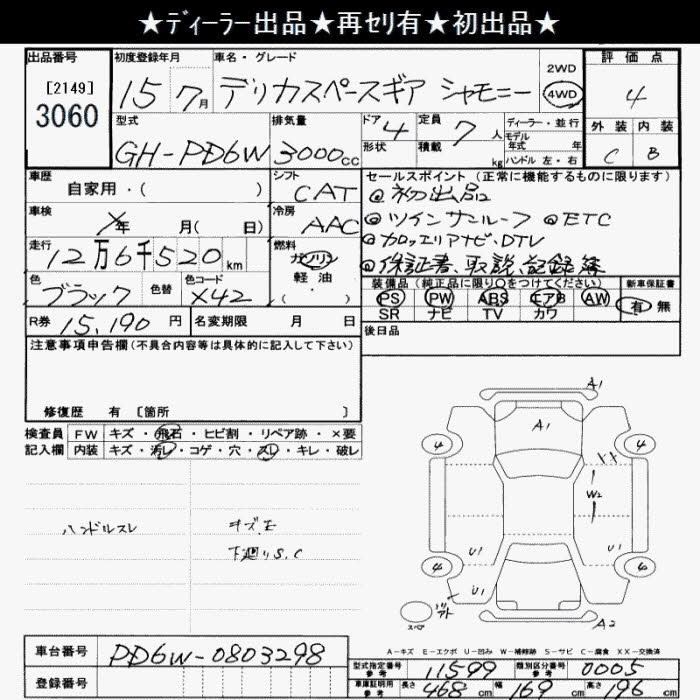 ★ﾃﾞｨｰﾗｰ出品★再ｾﾘ有★初出品★
出品番号 初度登録年月 車名・グレード 評価点
[2149] 15 7月 デリカスペースギア シャモニー 2WD 4
3060 4WD
型式 排気量 ドア 4 定員 7 人 ディーラー・並行 外装 内装
GH-PD6W 3000cc 形状 積載 kg モデル年式 年 ハンドル 左・右 C B
車歴 シフト セールスポイント (正常に機能するものに限ります)
自家用・( ) CAT @初出品
車検 冷房 @ツインサンルーフ @ETC
年 月( 日) AAC @カロッェリアナビ・DTV
走行 燃料 @保証書、取説、記録簿
12万6千520km ガソリン
色 色替 色コード 軽油 装備品 (純正品に限り○をつけてください) 新車保証書
ブラック X42 ( ) PS PW ABS エアB AW 有 無
R券 15,190円 名変期限 月 日 SR ナビ TV カワ
後日品
注意事項申告欄(不具合内容等は具体的に記入して下さい)
修復歴 有 [箇所 ]
検査員 FW キズ・飛石・ヒビ割・リペア跡・×要
記入欄 内装 キズ・汚レ・コゲ・穴・スレ・キレ・破レ
ハンドルスレ キズ、E
下廻りS.C
A1
A1
4 4
XX
W2
U1 U1
4 4
U1
スペア
A2
A-キズ E-エクボ U-凹み W-補修跡 S-サビ C-腐食 XX-交換済
車台番号 PD6W-0803298
型式指定番号 参考 11599 類別区分番号 参考 0005
登録番号 車庫証明用 参考 長さ 468cm 幅 169cm 高さ 196cm